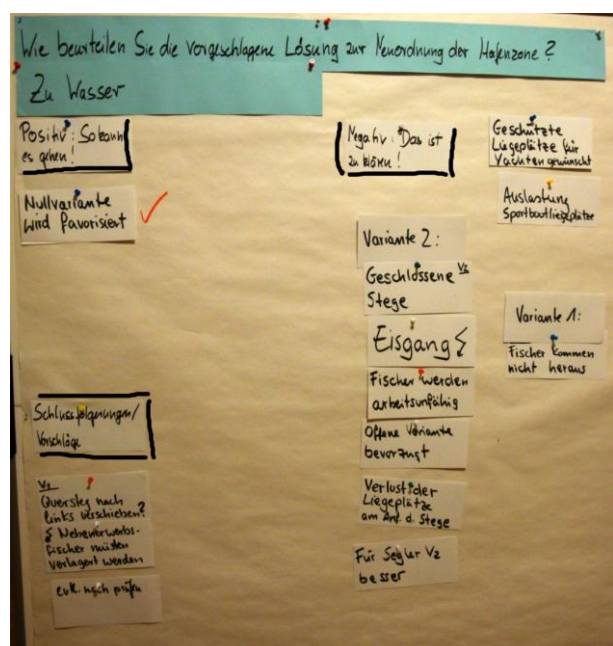 Wie beurteilen Sie die vorgeschlagene Lösung zur Neuordnung der Hafenzone?
Zu Wasser
Positiv: So kann
es gehen!
Nullvariante
wird favorisiert
Schlussfolgerungen/
Vorschläge
V2
Quersteg nach
links verschieben?
Nebenerwerbs-
fischer müssten
verlagert werden
evtl. noch prüfen
Negativ: Das ist
zu klären!
Variante 2:
Geschlossene V2
Stege
Eisgang
Fischer werden
arbeitsunfähig
Offene Variante
bevorzugt
Verlust der
Liegeplätze
am Anf. d. Stege
Für Segler V2
besser
Geschützte
Liegeplätze für
Yachten gewünscht
Auslastung
Sportbootliegeplätze
Variante 1:
Fischer kommen
nicht heraus